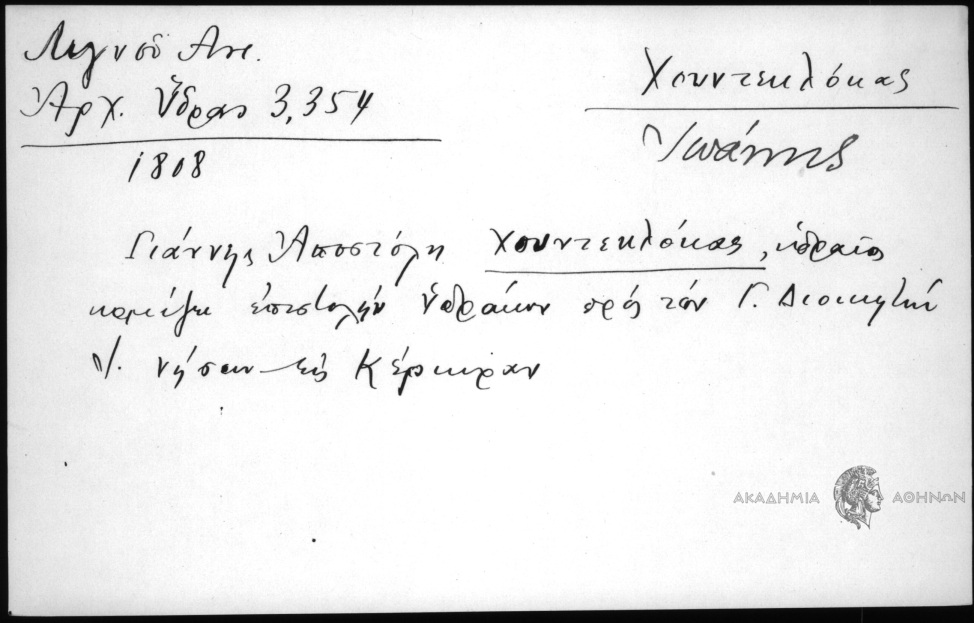 Λιγνοῦ Αντ.
Ἀρχ. Ὕδρας 3,354
1808
Χουντεκλόκας
Ἰωάννης
Γιάννης Ἀποστόλη Χουντεκλόκας, ὑδραῖος
κομίζει ἐπιστολὴν Ὑδραίων πρός τόν Γ. Διοικητήν
Ἰ. νήσων εἰς Κέρκυραν
ΑΚΑΔΗΜΙΑ ΑΘΗΝΩΝ